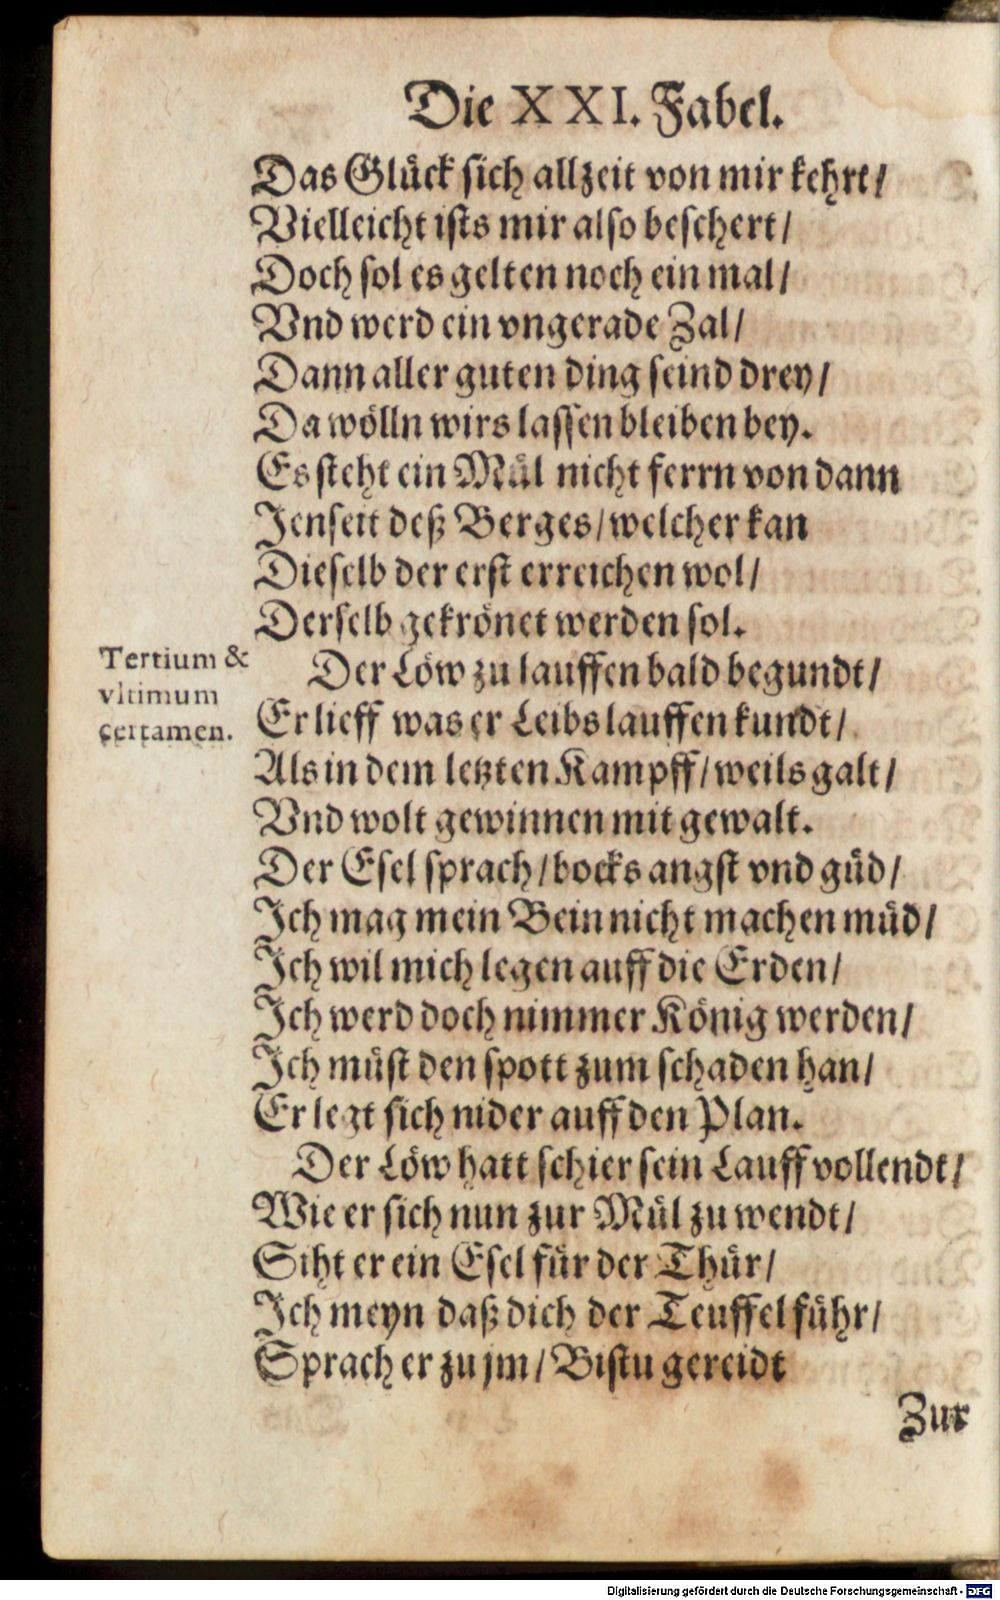 Die XXI. Fabel.
Das Glück sich allzeit von mir kehrt/
Vielleicht ists mir also beschert/
Doch sol es gelten noch ein mal/
Vnd werd ein vngerade Zal/
Dann aller guten ding seind drey/
Da wölln wirs lassen bleiben bey.
Es steht ein Mül nicht ferrn von dann
Jenseit deß Berges/ welcher kan
Dieselb der erst erreichen wol/
Derselb gekrönet werden sol.
Tertium &
vltimum
certamen.
Der Löw zu lauffen bald begundt/
Er lieff was er Leibs lauffen kundt/
Als in dem letzten Kampff/ weils galt/
Vnd wolt gewinnen mit gewalt.
Der Esel sprach/ bocks angst vnd güd/
Ich mag mein Bein nicht machen müd/
Ich wil mich legen auff die Erden/
Ich werd doch nimmer König werden/
Ich müst den spott zum schaden han/
Er legt sich nider auff den Plan.
Der Löw hatt schier sein Lauff vollendt/
Wie er sich nun zur Mül zu wendt/
Siht er ein Esel für der Thür/
Ich meyn daß dich der Teuffel führ/
Sprach er zu jm/ Bistu gereidt
Zur
Digitalisierung gefördert durch die Deutsche Forschungsgemeinschaft - DFG